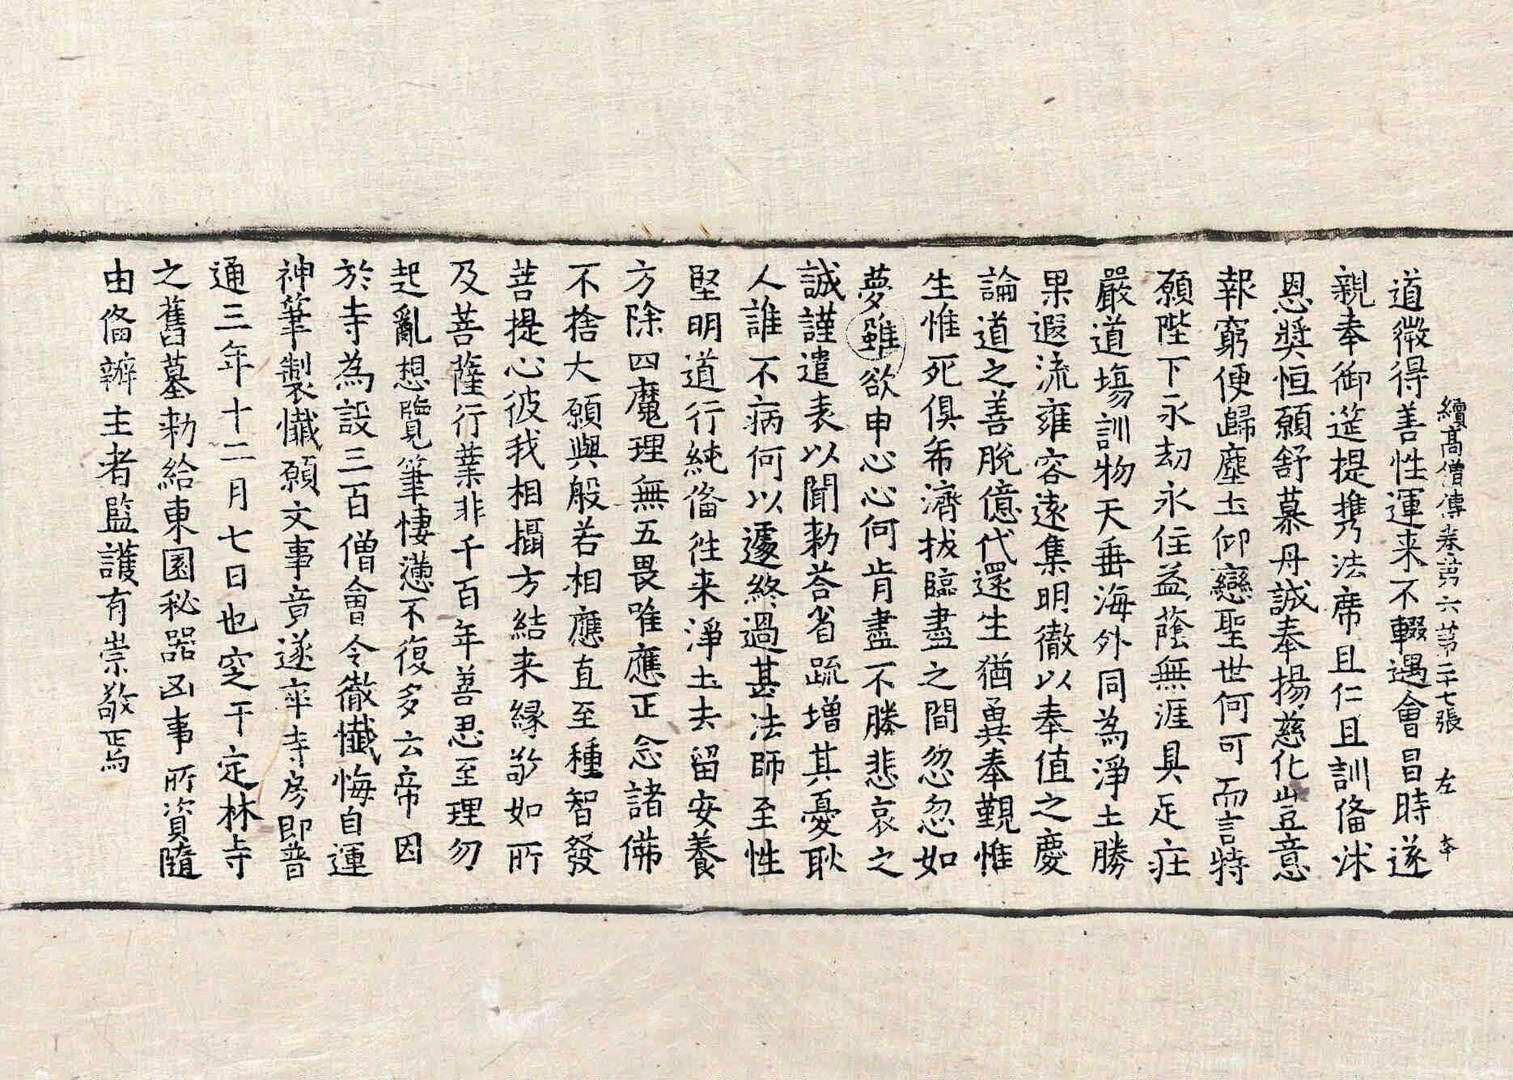 續高僧傳卷第六 第二十七張 左
道微得善性運来不輟遇會昌時遂
親奉御筵提携法席且仁且訓俻沭
恩獎恒願舒慕丹誠奉揚慈化豈意
報窮便歸塵土仰戀聖世何可而言特
願陛下永劫永住益蔭無涯具足莊
嚴道場訓物天垂海外同為淨土勝
果遐流雍容遠集明徹以奉值之慶
論道之善脫億代還生猶兾奉覲惟
生惟死俱希濟拔臨盡之間忽忽如
夢雖欲申心心何肯盡不勝悲哀之
誠謹遣表以聞勑荅省䟽增其憂耿
人誰不病何以遽終過甚法師至性
堅明道行純俻徃来淨土去留安養
方除四魔理無五畏唯應正念諸佛
不捨大願與般若相應直至種智發
菩提心彼我相攝方結来緣敬如所
及菩薩行業非千百年善思至理勿
起亂想覽筆悽懣不復多云帝因
於寺為設三百僧會令徹懺悔自運
神筆製懺願文事竟遂卒寺房即普
通三年十二月七日也窆于定林寺
之舊墓勑給東園秘器凶事所資隨
由俻辦主者監護有崇敬焉